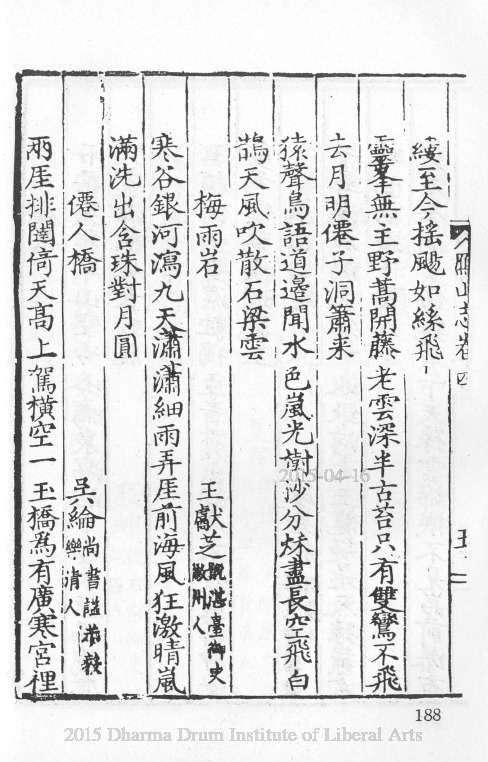 鴈山志卷四 五
縷至今搖颺如絲飛
靈峯無主野蒿開藤老雲深半古苔只有雙鸞不飛
去月明僊子洞簫来
猿聲鳥語道邊聞水色嵐光樹沙分秌盡長空飛白
鵠天風吹散石梁雲
梅雨岩 王獻芝 號湛臺御史
歙州人
寒谷銀河瀉九天瀟瀟細雨弄厓前海風狂激晴嵐
滿洗出含珠對月圓
僊人橋 吳綸 尚書謚恭毅
樂清人
兩厓排闥倚天高上駕橫空一玉橋為有廣寒宮裡
2015-04-16
188
2015 Dharma Drum Institute of Liberal Arts